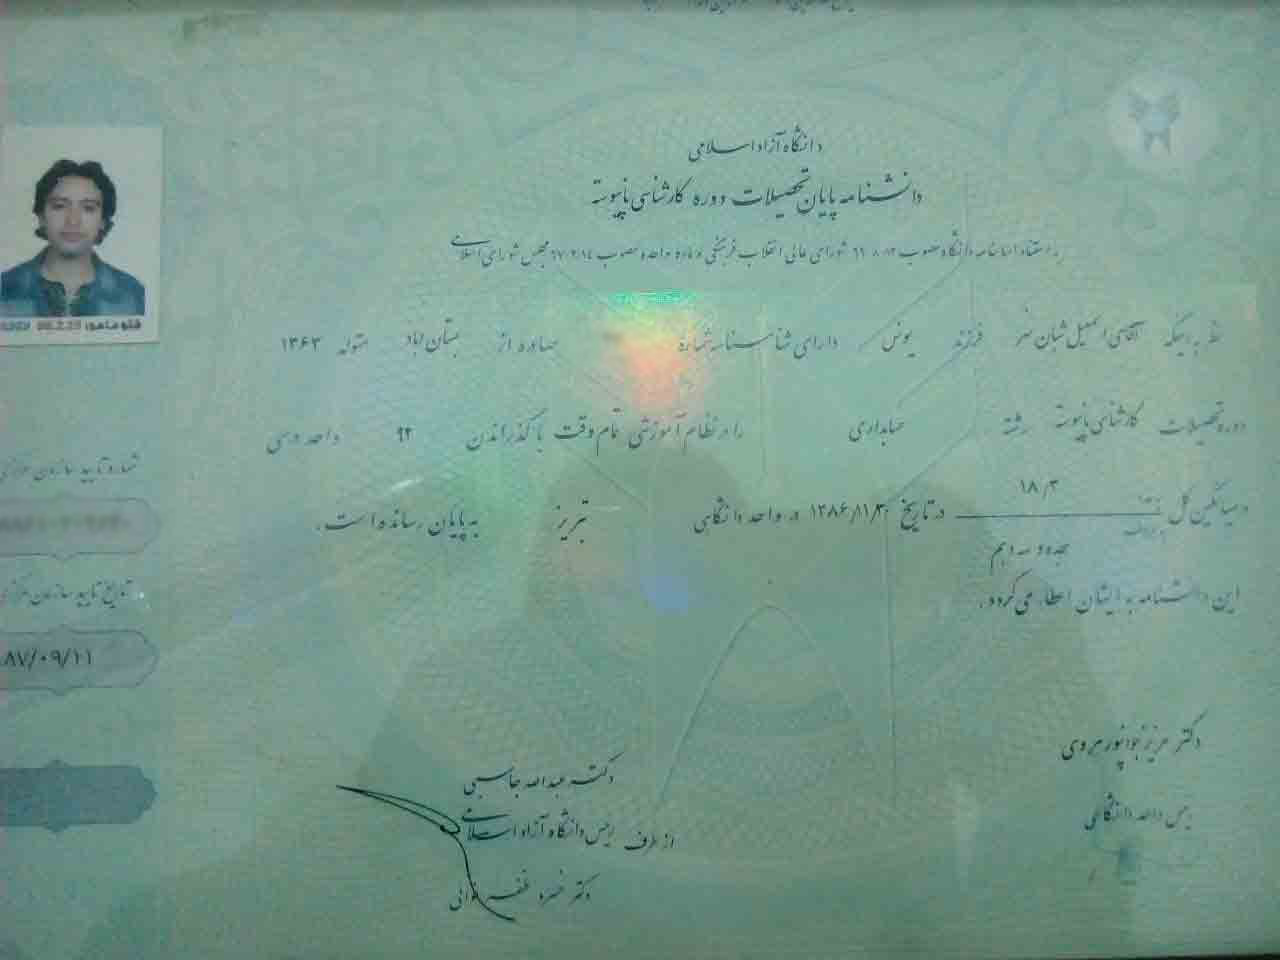 دانشگاه آزاد اسلامی
دانشنامه پایان تحصیلات دوره کارشناسی ناپیوسته
به استناد اساسنامه دانشگاه مصوب شورای عالی انقلاب فرهنگی و ماده واحده مصوب ۶۷/۲/۱۴ مجلس شورای اسلامی
نظر به اینکه آقای اسمعیل شبان فرزند یونس دارای شناسنامه شماره صادره از بستان آباد متولد ۱۳۶۳
دوره تحصیلات کارشناسی ناپیوسته رشته حسابداری را در نظام آموزشی تمام وقت با گذراندن ۹۲ واحد درسی
و میانگین کل ۱۸/۳ در تاریخ در واحد دانشگاهی تبریز به پایان رسانده است.
هجده و سه دهم
این دانشنامه به ایشان اعطا می گردد.
شماره تایید سازمان مرکزی
تاریخ تایید سازمان مرکزی
۸۷/۰۹/۱۱
دکتر عزیز جوانپور هروی
رئیس واحد دانشگاهی
دکتر عبدالله جاسبی
از طرف رئیس دانشگاه آزاد اسلامی
دکتر